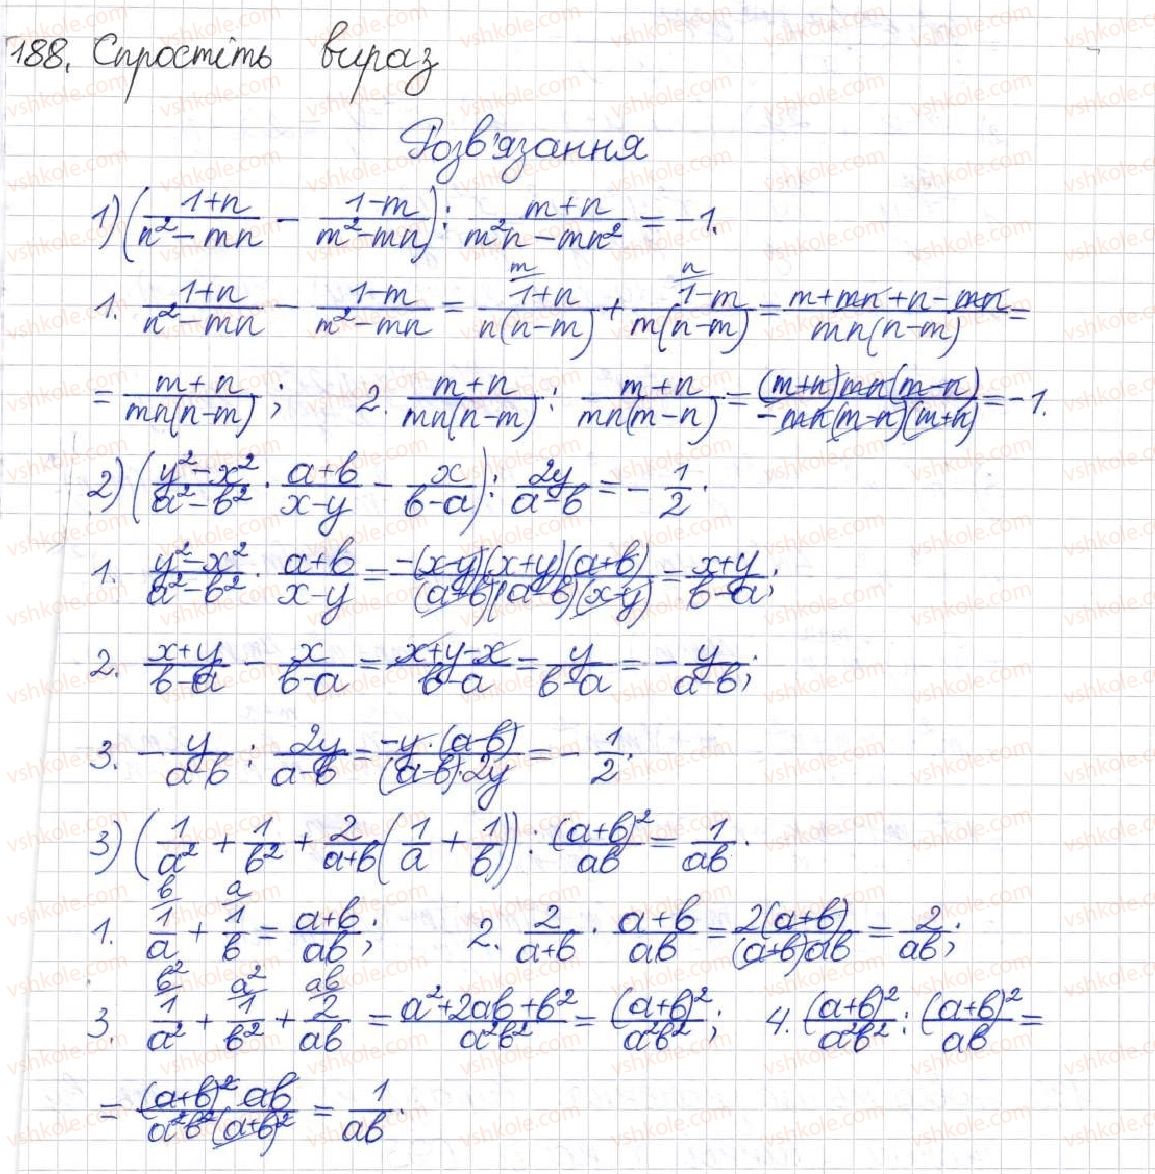 188. Спростіть вираз
Розв'язання
1) ((1+n)/(n²-mn) - (1-m)/(m²-mn)) : (m+n)/(m²n-mn²) = -1.
1. (1+n)/(n²-mn) - (1-m)/(m²-mn) = m/ (1+n)/(n(n-m)) + n/ (1-m)/(m(n-m)) = (m+mn+n-mn)/(mn(n-m)) =
= (m+n)/(mn(n-m)); 2. (m+n)/(mn(n-m)) : (m+n)/(mn(m-n)) = ((m+n)mn(m-n))/(-mn(m-n)(m+n)) = -1.
2) ((y²-x²)/(a²-b²) · (a+b)/(x-y) - x/(b-a)) : 2y/(a-b) = -1/2.
1. (y²-x²)/(a²-b²) · (a+b)/(x-y) = (-(x-y)(x+y)(a+b))/((a+b)(a-b)(x-y)) = (x+y)/(b-a);
2. (x+y)/(b-a) - x/(b-a) = (x+y-x)/(b-a) = y/(b-a) = -y/(a-b);
3. -y/(a-b) : 2y/(a-b) = (-y·(a-b))/((a-b)·2y) = -1/2.
3) (1/a² + 1/b² + 2/(a+b) (1/a + 1/b)) : (a+b)²/ab = 1/ab.
1. b/ 1/a + a/ 1/b = (a+b)/ab; 2. 2/(a+b) · (a+b)/ab = 2(a+b)/((a+b)ab) = 2/ab;
3. b²/ 1/a² + a²/ 1/b² + ab/ 2/ab = (a²+2ab+b²)/a²b² = (a+b)²/a²b²; 4. (a+b)²/a²b² : (a+b)²/ab =
= ((a+b)² ab)/(a²b²(a+b)²) = 1/ab.